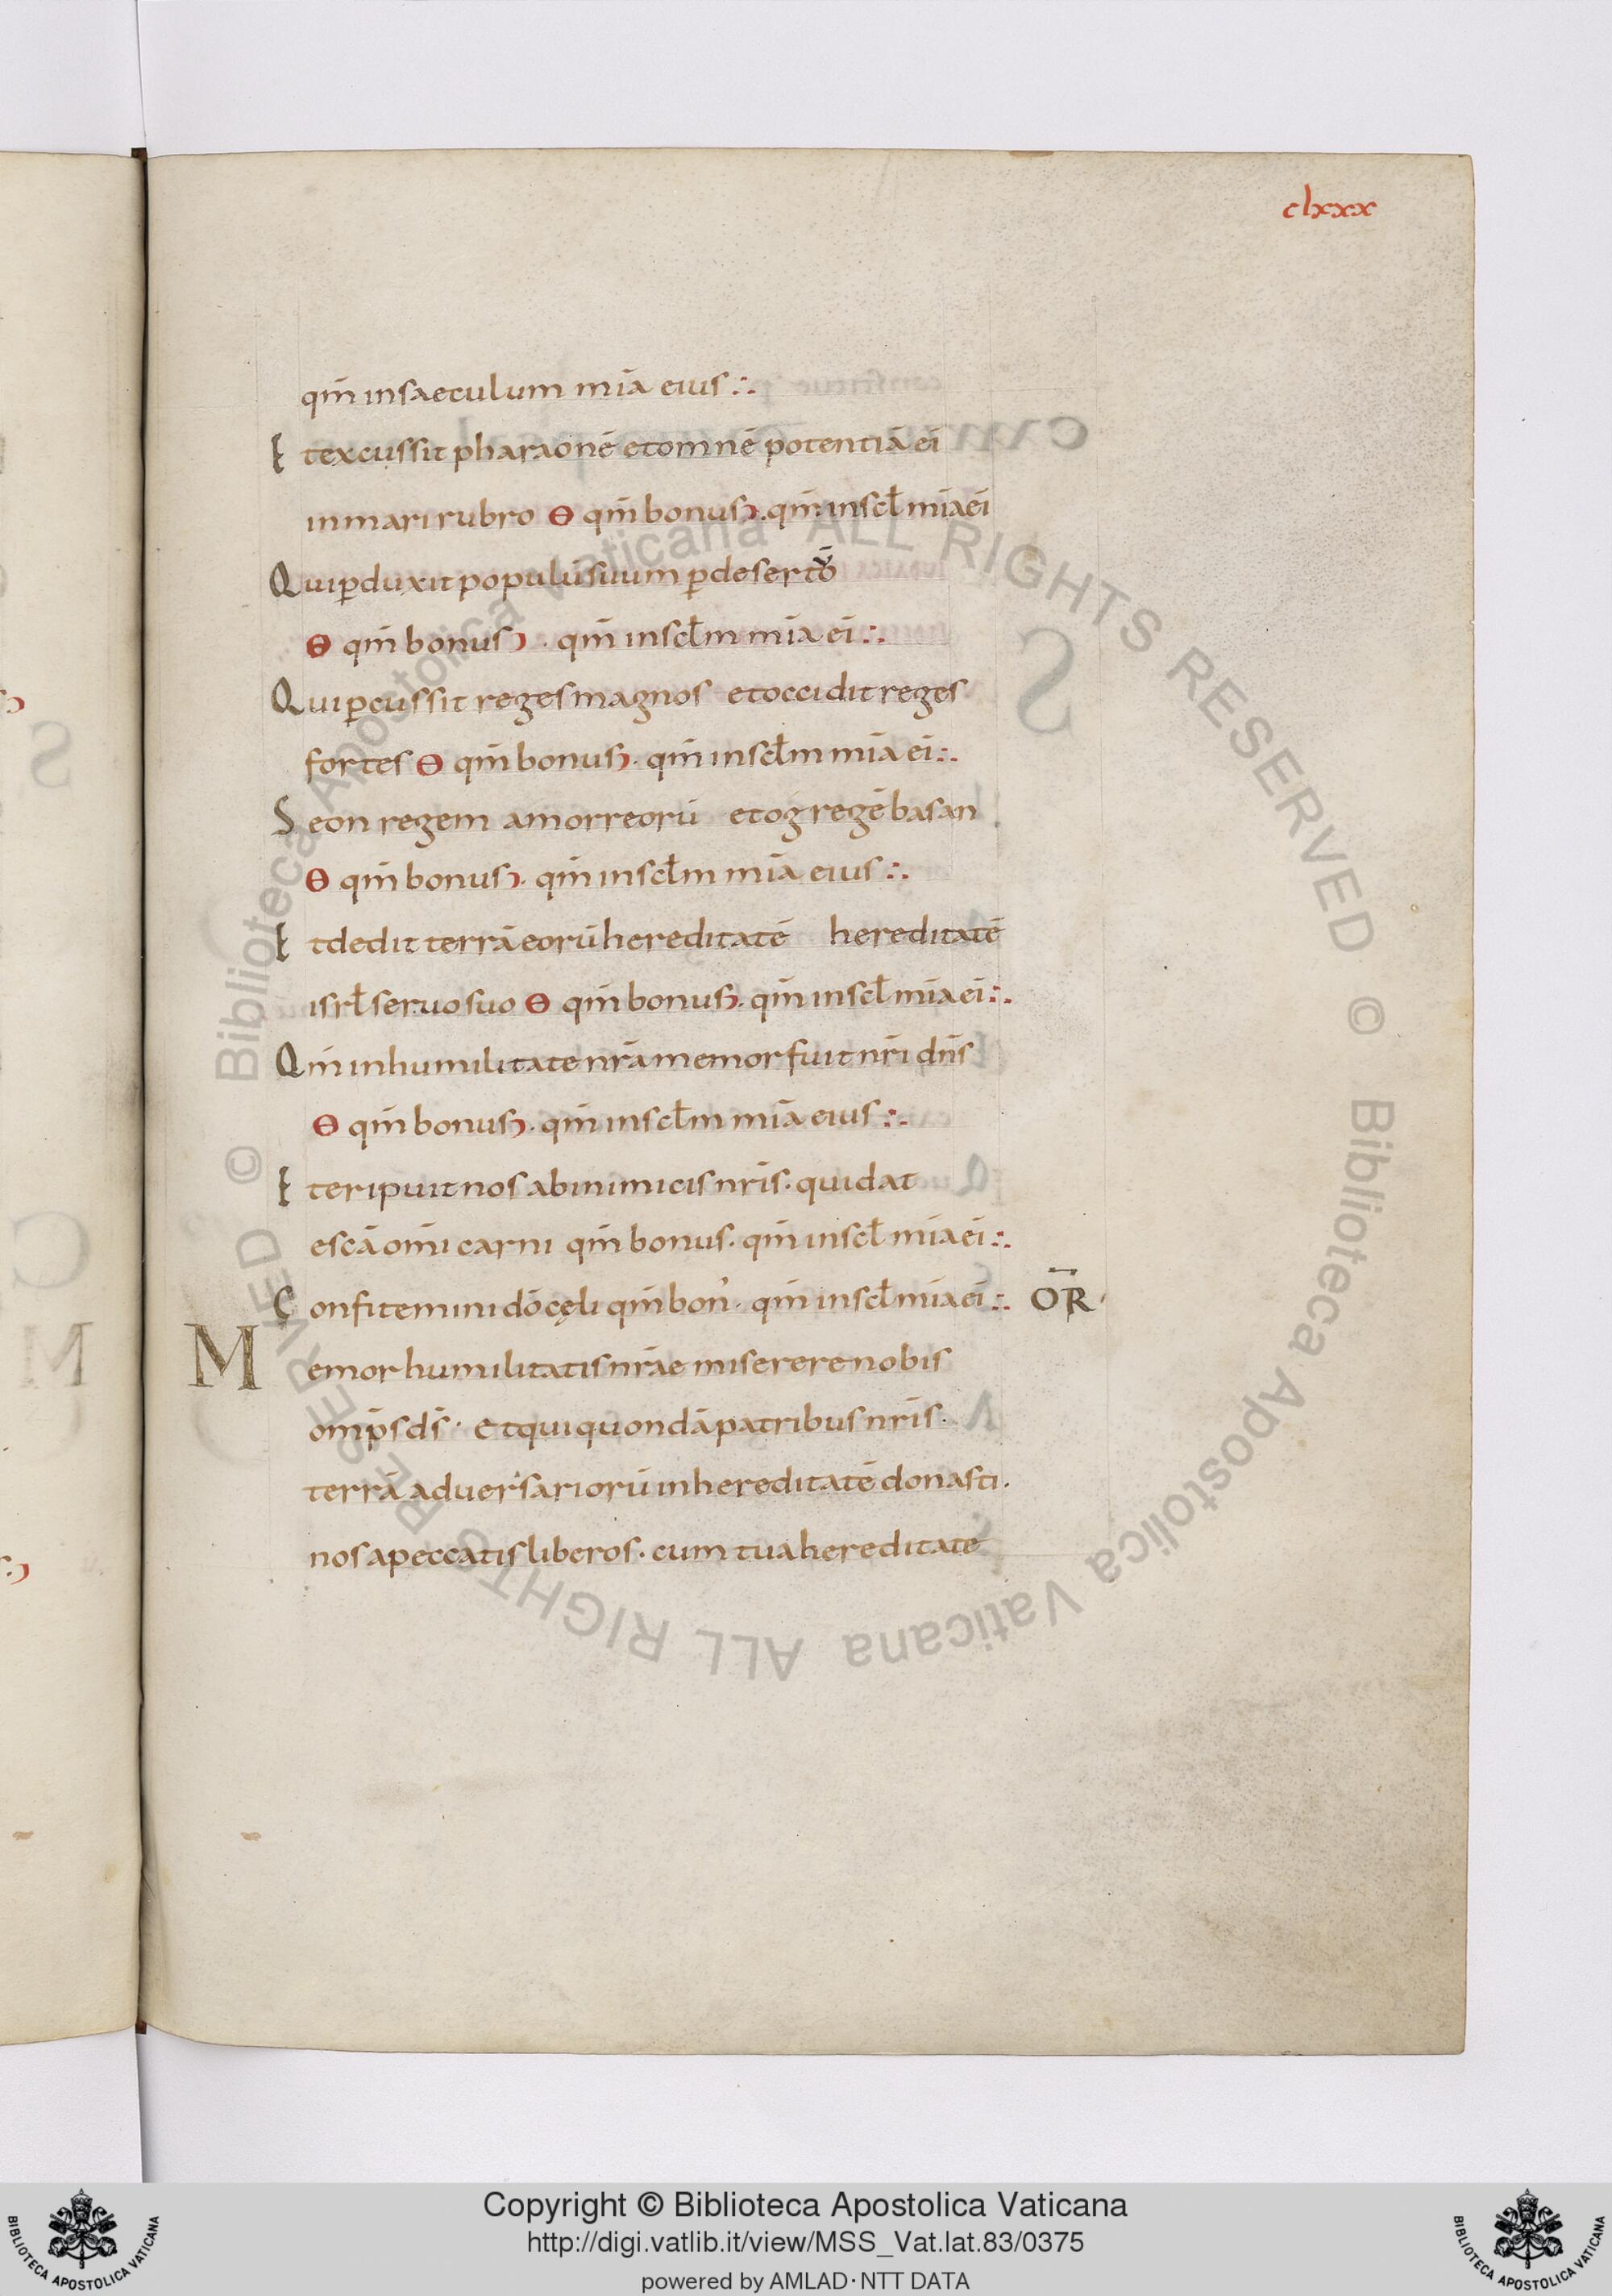 clxxx
qm̅ insaeculum mi̅a eius :.
Et excussit pharaone̅ et omne̅ potentia̅ ei̅
inmari rubro Ө qm̅ bonus. qm̅ inscl̅ mi̅a ei̅
Qui p̲duxit populu̅ suum p̲ desertu̅
Ө qm̅ bonus . qm̅ inscl̅m mi̅a ei̅ :.
Qui p̲cussit reges magnos et occidit reges
fortes Ө qm̅ bonus. qm̅ inscl̅m mi̅a ei̅ :.
Seon regem amorreoru̅ et og rege̅ basan
Ө qm̅ bonus. qm̅ inscl̅m mi̅a eius :.
Et dedit terra̅ eoru̅ hereditate̅ hereditate̅
isrl̅ seruo suo Ө qm̅ bonus. qm̅ inscl̅ mi̅a ei̅ :.
Qm̅ inhumilitate nr̅a memor fuit nr̅i dn̅s
Ө qm̅ bonus. qm̅ inscl̅m mi̅a eius :.
Et eripuit nos abinimicis nr̅is. qui dat
esca̅ om̅i carni qm̅ bonus. qm̅ inscl̅ mi̅a ei̅ :.
Confitemini do̅ cęli qm̅ bon'. qm̅ inscl̅ mi̅a ei̅ :. OR̅
Memor humilitatis nr̅ae miserere nobis
omp̅s ds̅. Et qui quonda̅ patribus nr̅is.
terra̅ aduersarioru̅ inhereditate̅ donasti.
nos apeccatis liberos. cum tua hereditate
© Biblioteca Apostolica Vaticana ALL RIGHTS RESERVED © Biblioteca Apostolica Vaticana ALL RIGHTS RESERVED
Copyright © Biblioteca Apostolica Vaticana
http://digi.vatlib.it/view/MSS_Vat.lat.83/0375
powered by AMLAD·NTT DATA
BIBLIOTECA APOSTOLICA VATICANA
BIBLIOTECA APOSTOLICA VATICANA